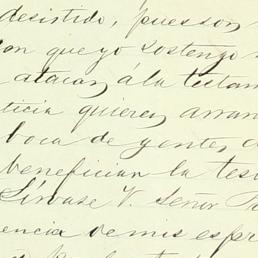 desistido, pues son
con que yo sostengo
atacan á la testam
ticia quieren arran
boca de gente, d
benefician la tes
Sírvase V. Señor
encia de mis espr